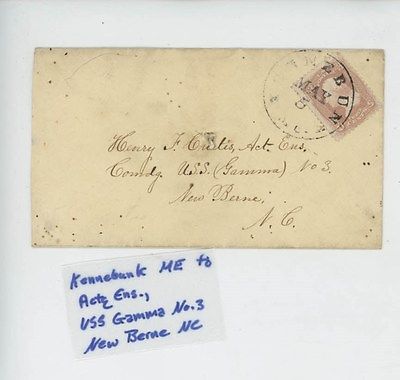 KENNEBUNK
MAY
5
Henry F. Curtis, Act. Ens,
Comdg. U.S.S. (Gamma) No 3.
New Berne,
N. C.
Kennebunk ME to
Actg Ens.,
USS Gamma No. 3
New Berne NC